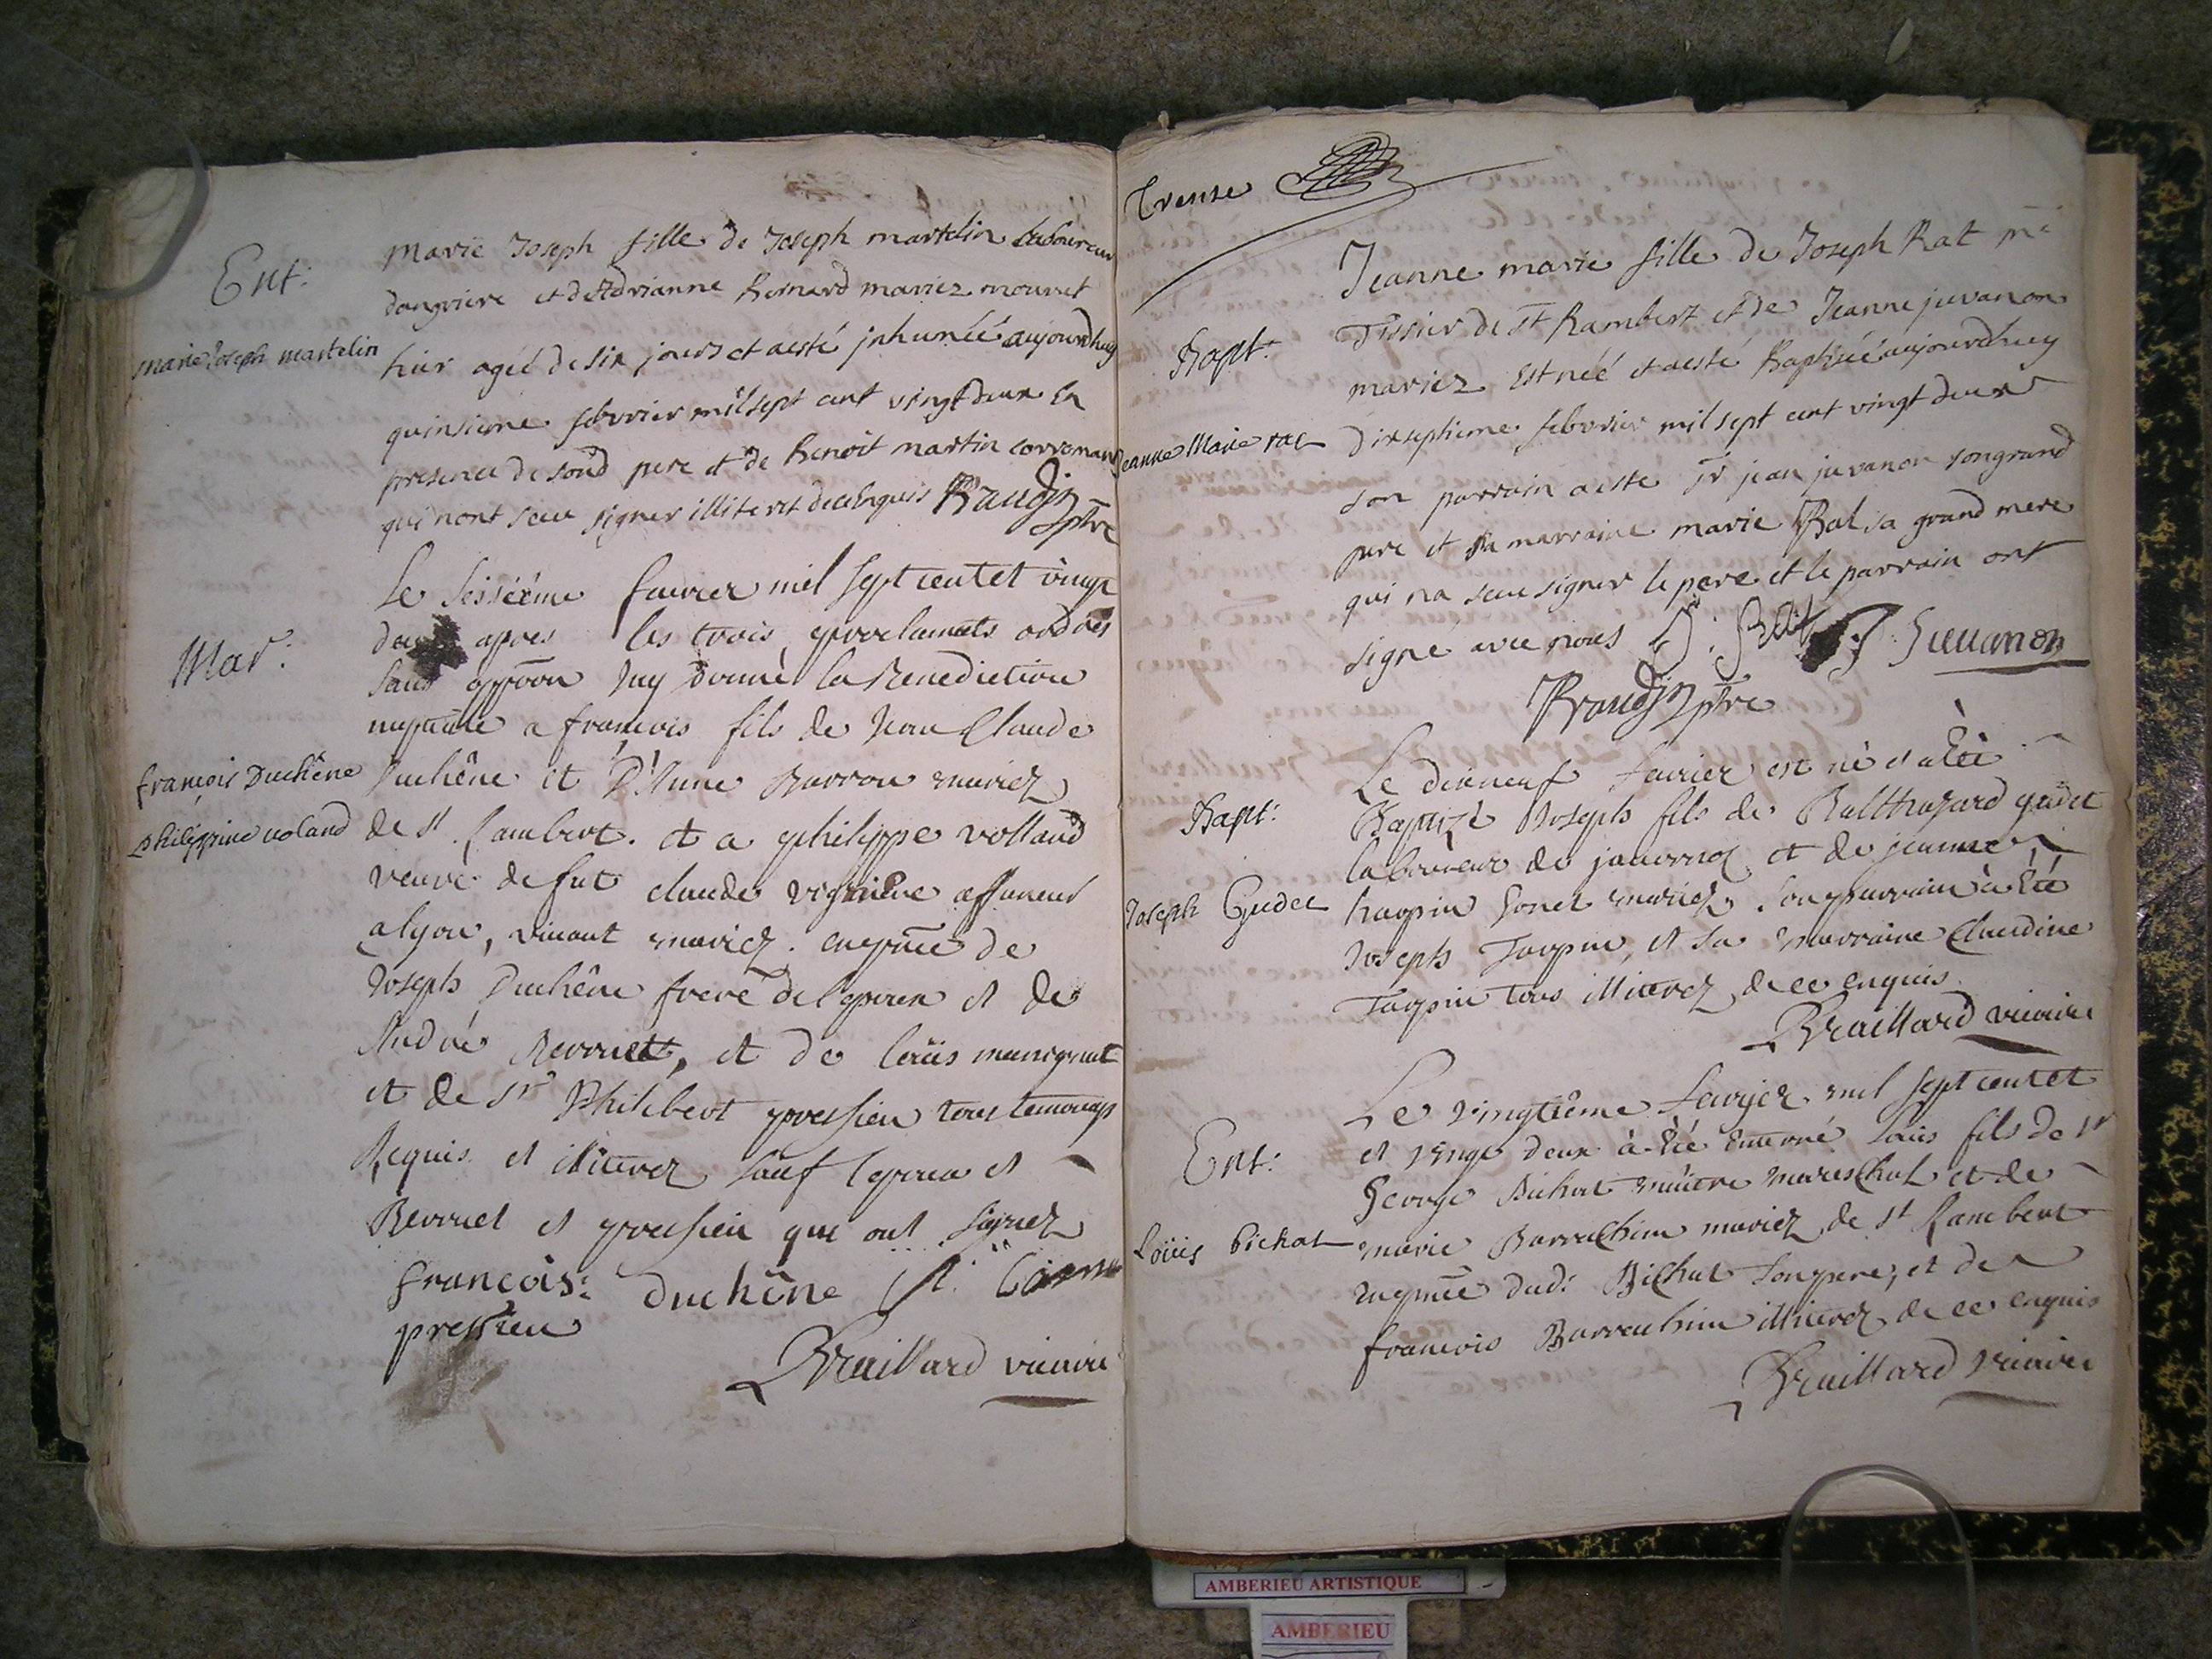 Ent:
marie Joseph martelin
marie Joseph fille de Joseph martelin laboureur
dangriere et dAdrianne Bernard mariez mourut
hier ageé de six jours et aesté jnhumeé aujourdhuy
quinsieme febvrier mil sept cent vingt deux En
presence de sond pere et de Benoit martin
qui nont sceu signer illiteret de ce Enquis Baudin ptre
Mar:
françois Duchêne
philippine voland
Le seisiéme feurier mil sept cent et vingt
deux apres les trois proclamats ordres
sans oppōōn Jay donné la Benediction
nuptiale a francois fils de Jean Claude
Duchêne et D'Anne Barrou mariez
de st. Rambert. et a philippe volland
veuve de fut claude vigniere affaneur
a lyon, vivant mariez. en pnce de
Joseph Duchêne frere de l'epoux et de
André Revouet, et de loüis
et de Sr Philibert pressieu tous temoings
Requis et illiterez sauf l'epoux et
Revouet et pressieu qui ont signez
francois: duchêne
pressieu
Braillard vicaire
Trense
Bapt:
Jeanne Marie rat
Jeanne marie fille de Joseph Rat me
Tissier de st Rambert et de Jeanne juvanon
mariez est néé et aesté Baptiséé aujourdhuy
dixseptieme febvrier mil sept cent vingt deux
son parrain aeste Sr jean juvanon songrand
pere et sa marraine marie Rat sa grand mere
qui na sceu signer le pere et le parrain ont
signé avec nous J: Rat J: Juuanon
Baudin ptre
Bapt:
Joseph Gudet
Le dixneuf feurier est né et a Eté
Baptizé Joseph fils de Balthazard gudet
laboureur de jauornoz et de jeanne
Taupin Gonet mariez. son parrain a Eté
Joseph Taupin, et sa marraine Claudine
Taupin tous illiterez de ce enquis
Braillard vicaire
Ent:
Loüis Bichat
Le vingtiême feurjer mil sept cent et
et vingt deux à Eté Enterré Loüis fils de Sr
George Bichat maitre mareschal et de
marie Barrachin mariez de st Rambert
en pnce dud: Bichat son pere, et de
francois Barrachin illiterez de ce enquis
Braillard vicaire
AMBERIEU ARTISTIQUE
AMBERIEU